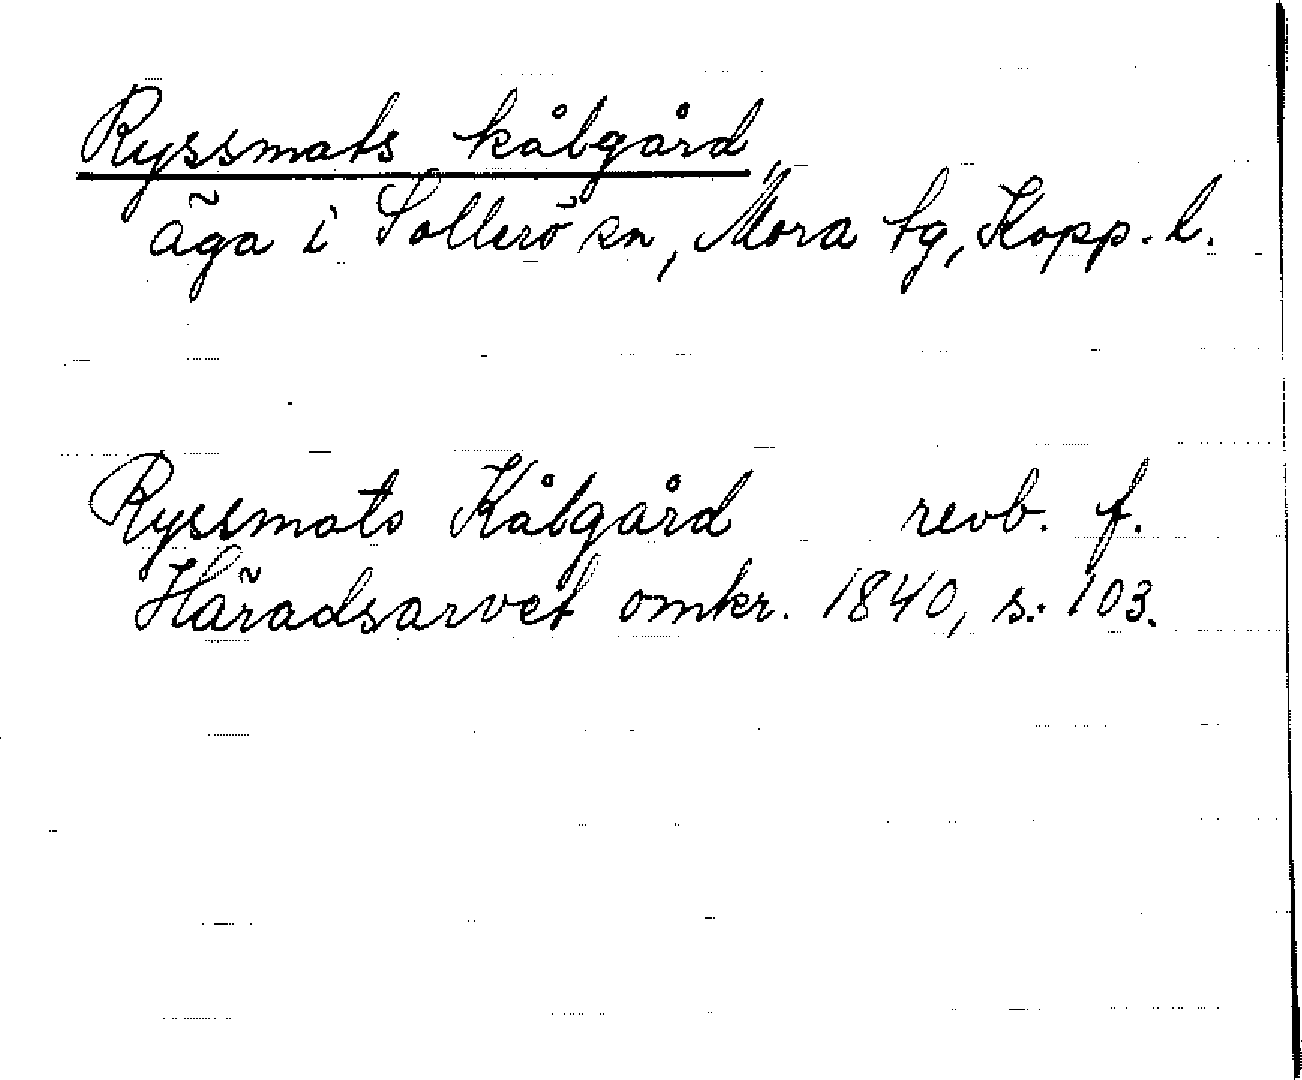 Ryssmats kålgård
äga i Sollerö sn, Mora tg, Kopp. l.
Ryssmats Kålgård revb. f.
Häradsarvet omkr. 1840, s. 103.